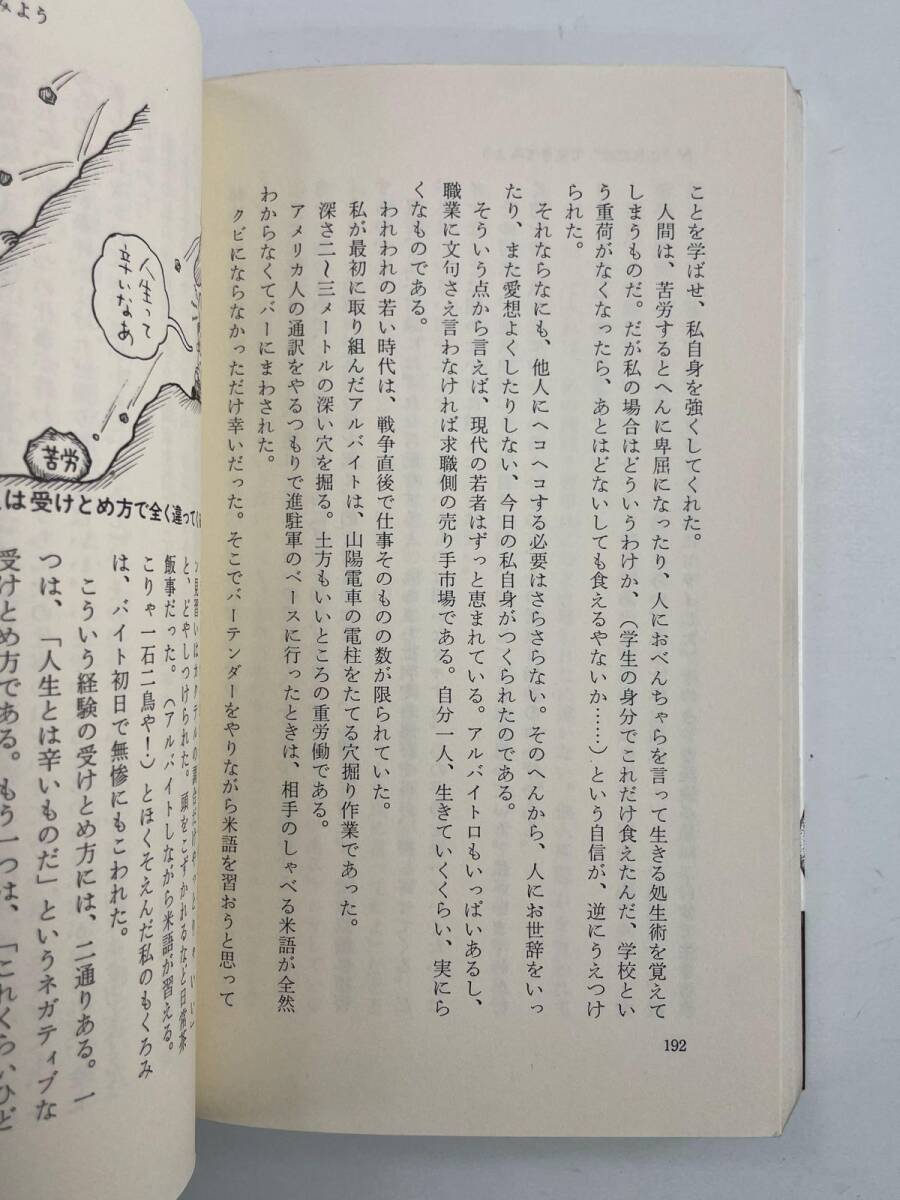 ことを学ばせ、私自身を強くしてくれた。
人間は、苦労するとへんに卑屈になったり、人におべんちゃらを言って生きる処生術を覚えて
しまうものだ。だが私の場合はどういうわけか、（学生の身分でこれだけ食えたんだ、学校とい
う重荷がなくなったら、あとはどないしても食えるやないか……）という自信が、逆にうえつけ
られた。
それならなにも、他人にヘコヘコする必要はさらさらない。そのへんから、人にお世辞をいっ
たり、また愛想よくしたりしない、今日の私自身がつくられたのである。
そういう点から言えば、現代の若者はずっと恵まれている。アルバイト口もいっぱいあるし、
職業に文句さえ言わなければ求職側の売り手市場である。自分一人、生きていくくらい、実にら
くなものである。
われわれの若い時代は、戦争直後で仕事そのものの数が限られていた。
私が最初に取り組んだアルバイトは、山陽電車の電柱をたてる穴掘り作業であった。
深さ二〜三メートルの深い穴を掘る。土方もいいところの重労働である。
アメリカ人の通訳をやるつもりで進駐軍のベースに行ったときは、相手のしゃべる米語が全然
わからなくてバーにまわされた。
クビにならなかっただけ幸いだった。そこでバーテンダーをやりながら米語を習おうと思って
192
みよう
人生って
辛いなあ
苦労
は受けとめ方で全く違って
と、どやしつけられた。頭をこずかれるなど日常茶
飯事だった。（アルバイトしながら米語が習える。
こりゃ一石二鳥や！）とほくそえんだ私のもくろみ
は、バイト初日で無惨にもこわれた。
こういう経験の受けとめ方には、二通りある。一
つは、「人生とは辛いものだ」というネガティブな
受けとめ方である。もう一つは、「これくらいひど